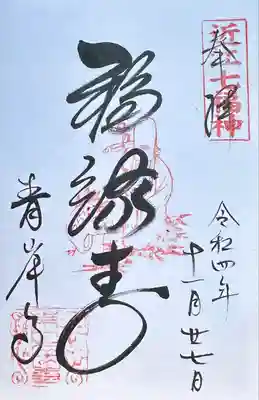 奉拝
近江七福神
福禄寿
令和四年
十一月廿七日
青岸寺